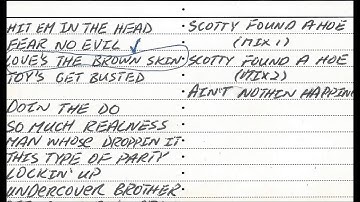 HIT EM IN THE HEAD
FEAR NO EVIL
LOVE'S THE BROWN SKIN
TOY'S GET BUSTED
DOIN THE DO
SO MUCH REALNESS
MAN WHOSE DROPPIN IT
THIS TYPE OF PARTY
LOCKIN' UP
UNDERCOVER BROTHER
SCOTTY FOUND A HOE
(MIX 1)
SCOTTY FOUND A HOE
(MIX 2)
AIN'T NOTHIN HAPPIN